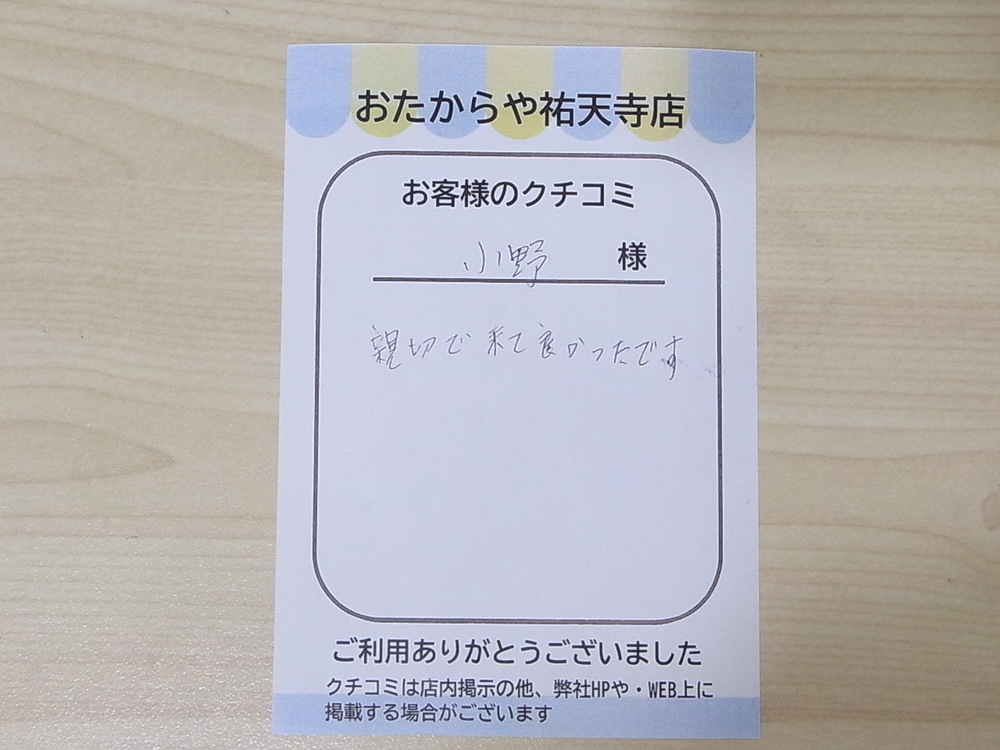 おたからや祐天寺店
お客様のクチコミ
小野 様
親切で来て良かったです
ご利用ありがとうございました
クチコミは店内掲示の他、弊社HPや・WEB上に
掲載する場合がございます